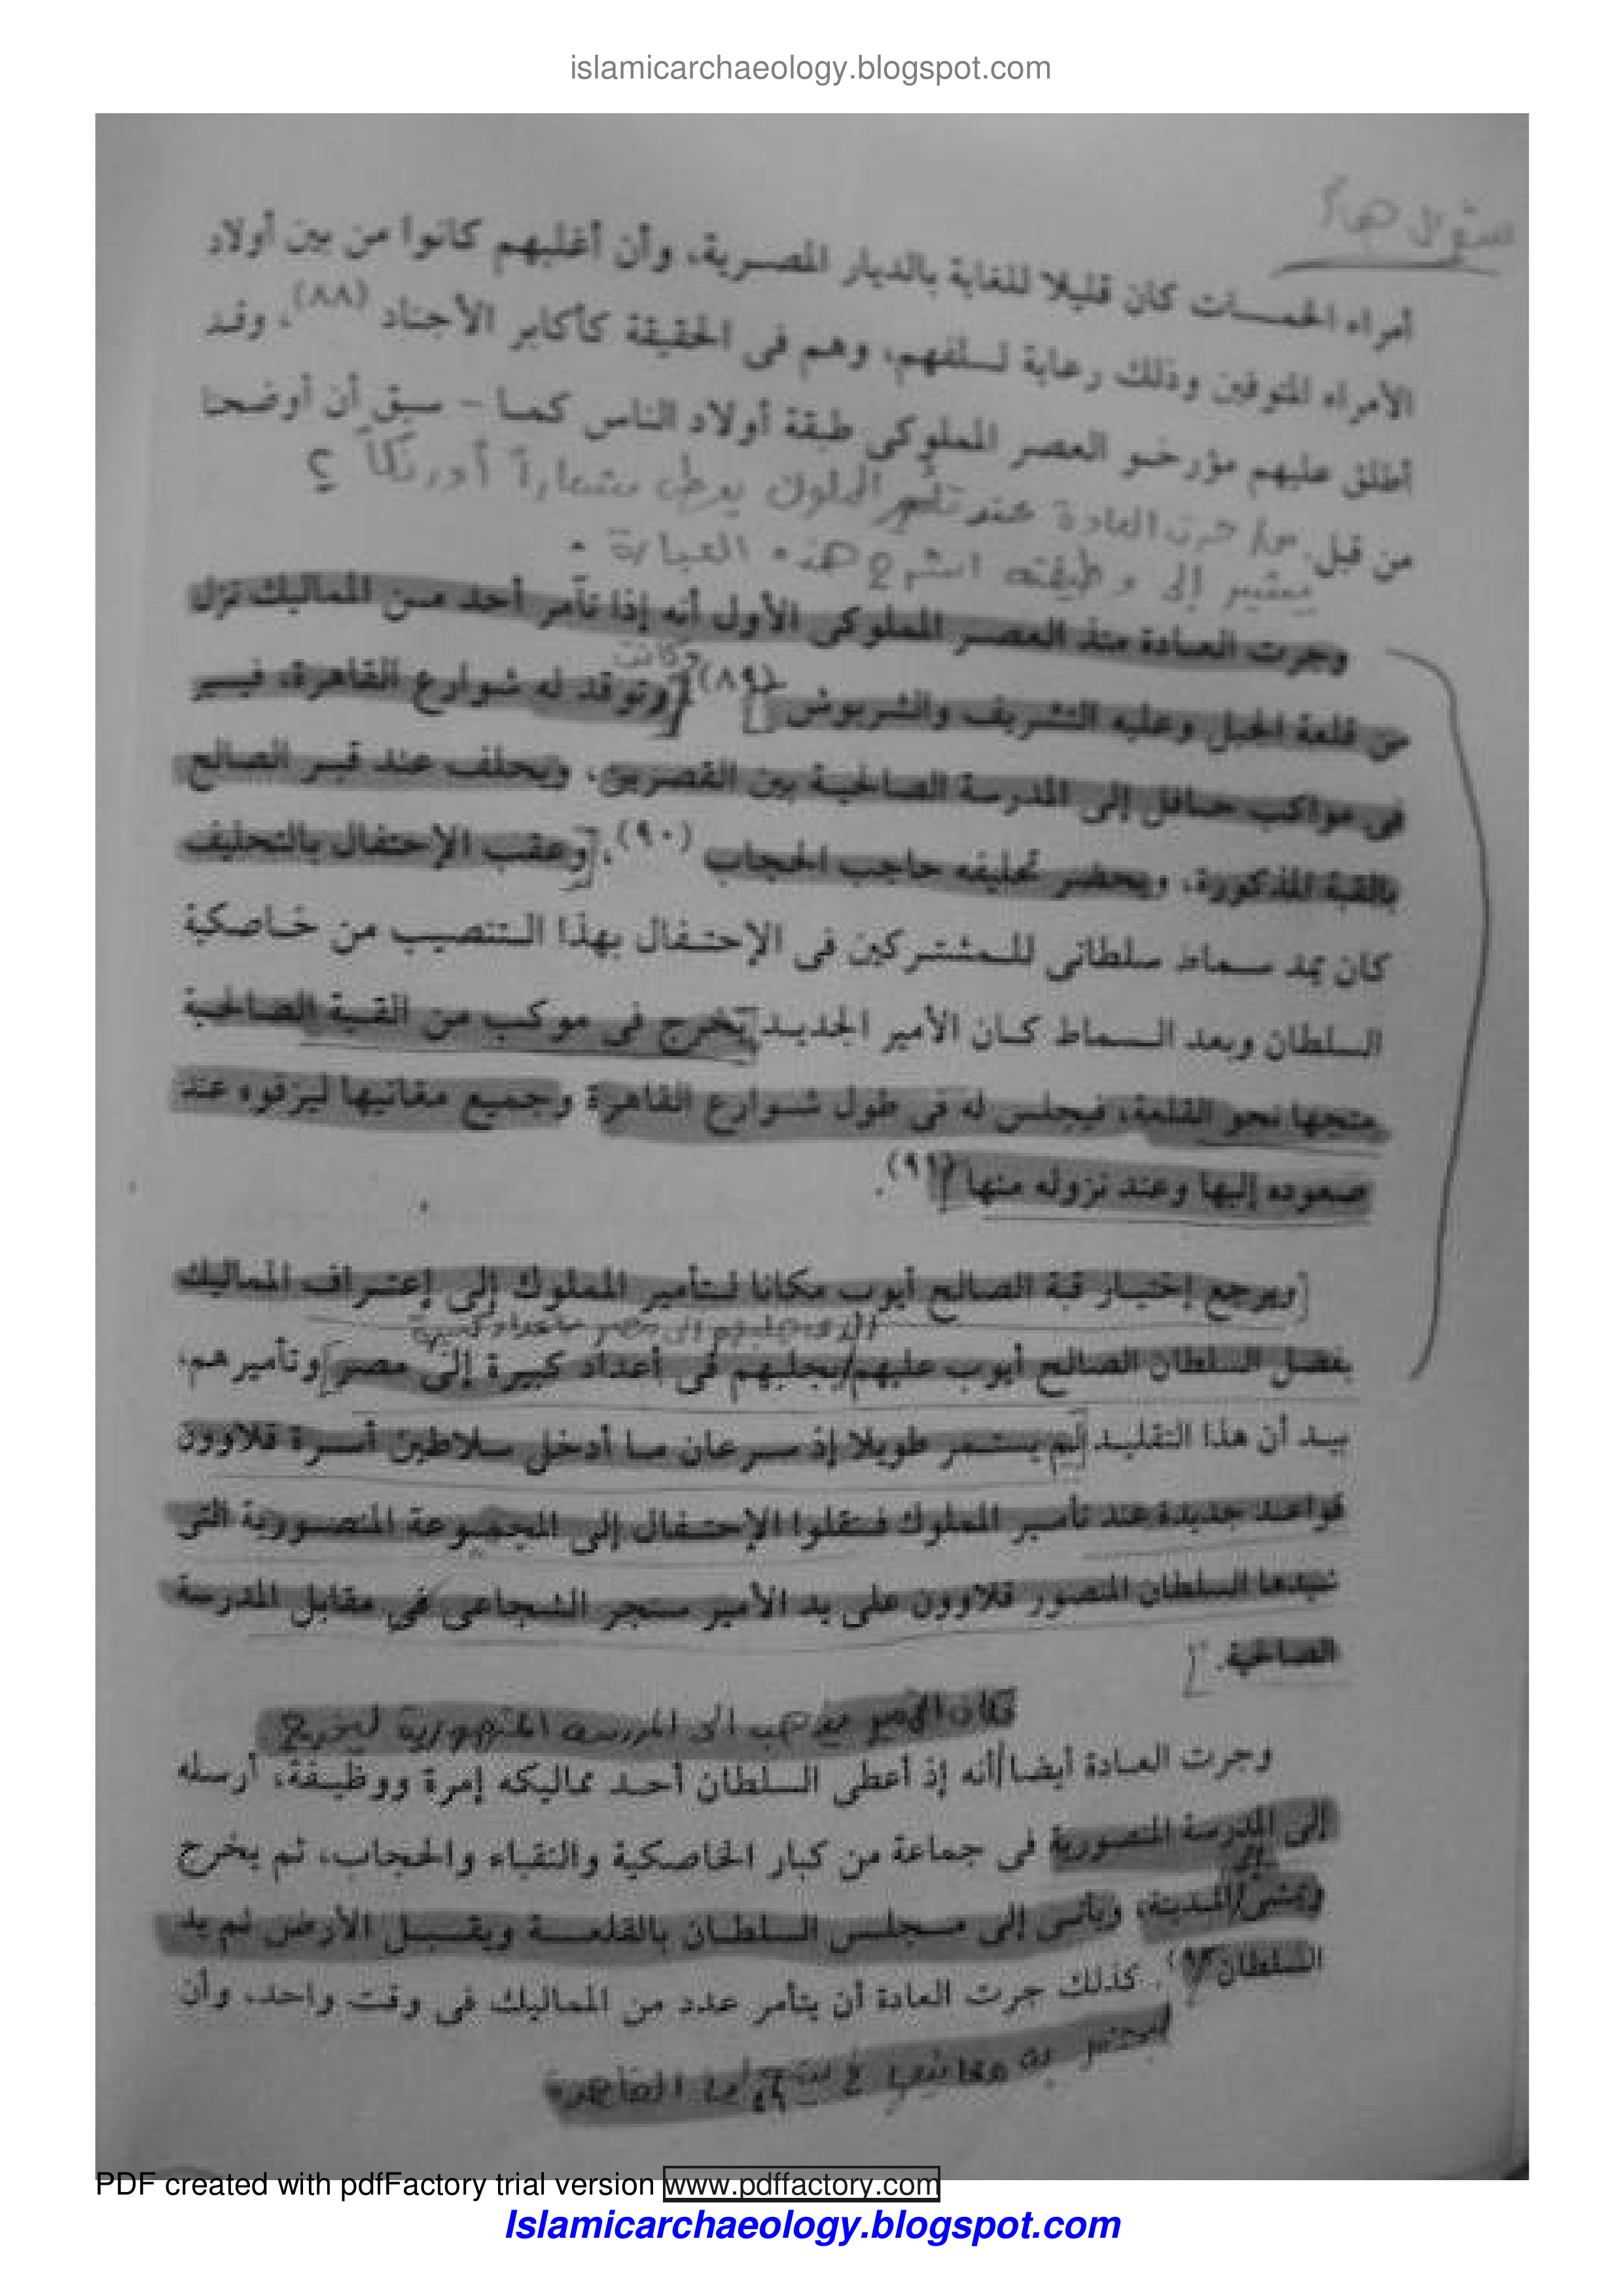 islamicarchaeology.blogspot.com
سؤال هام
أمراء الخمسات كان قليلا للغاية بالديار المصرية، وأن أغلبهم كانوا من بين أولاد
الأمراء المتوفين وذلك رعاية لسلفهم، وهم فى الحقيقة كأكابر الأجناد (٨٨)، وقد
أطلق عليهم مؤرخو العصر المملوكى طبقة أولاد الناس كما - سبق أن أوضحنا
من قبل.
س/ جرت العادة عند تأمير المملوك يعطى شعاراً أو رنكاً ؟
يشير إلى وظيفته اشرح هذه العبارة .
وجرت العادة منذ العصر المملوكى الأول أنه إذا تآمر أحد من المماليك نزل
وكانت
من قلعة الجبل وعليه التشريف والشربوش (٨٩) وتوقد له شوارع القاهرة، فيسير
فى مواكب حافل إلى المدرسة الصالحية بين القصرين، ويحلف عند قبر الصالح
بالقبة المذكورة، ويحضر تحليفه حاجب الحجاب (٩٠)، وعقب الإحتفال بالتحليف
كان يمد سماط سلطانى للمشتركين فى الإحتفال بهذا التنصيب من خاصكية
السلطان وبعد السماط كان الأمير الجديد يخرج فى موكب من القبة الصالحية
متجها نحو القلعة، فيجلس له فى طول شوارع القاهرة وجميع مغانيها ليزفوه عند
صعوده إليها وعند نزوله منها (٩١).
ويرجع إختيار قبة الصالح أيوب مكانا لتأمير المملوك إلى إعتراف المماليك
الذى جلبهم إلى مصر بأعداد كبيرة
بفضل السلطان الصالح أيوب عليهم/بجلبهم فى أعداد كبيرة إلى مصر وتأميرهم،
بيد أن هذا التقليد لم يستمر طويلا إذ سرعان ما أدخل سلاطين أسرة قلاوون
قواعد جديدة عند تأمير المملوك فنقلوا الإحتفال إلى المجموعة المنصورية التى
شيدها السلطان المنصور قلاوون على يد الأمير سنجر الشجاعى فى مقابل المدرسة
الصالحية.
فكان الأمير يذهب إلى المدرسة المنصورية ليخرج
وجرت العادة أيضا/أنه إذ أعطى السلطان أحد مماليكه إمرة ووظيفة، أرسله
إلى المدرسة المنصورية فى جماعة من كبار الخاصكية والنقباء والحجاب، ثم يخرج
ويشق/المدينة، ويأتى إلى مجلس السلطان بالقلعة ويقبل الأرض ثم يد
السلطان (٩٢). كذلك جرت العادة أن يتأمر عدد من المماليك فى وقت واحد، وأن
به مغانيها القاهرة
PDF created with pdfFactory trial version www.pdffactory.com
Islamicarchaeology.blogspot.com